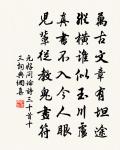 萬古文章有坦途
縱橫誰似玉川盧
真書不入今人眼
兒輩從教鬼畫符
元好問論詩三十首十
三詞典網集